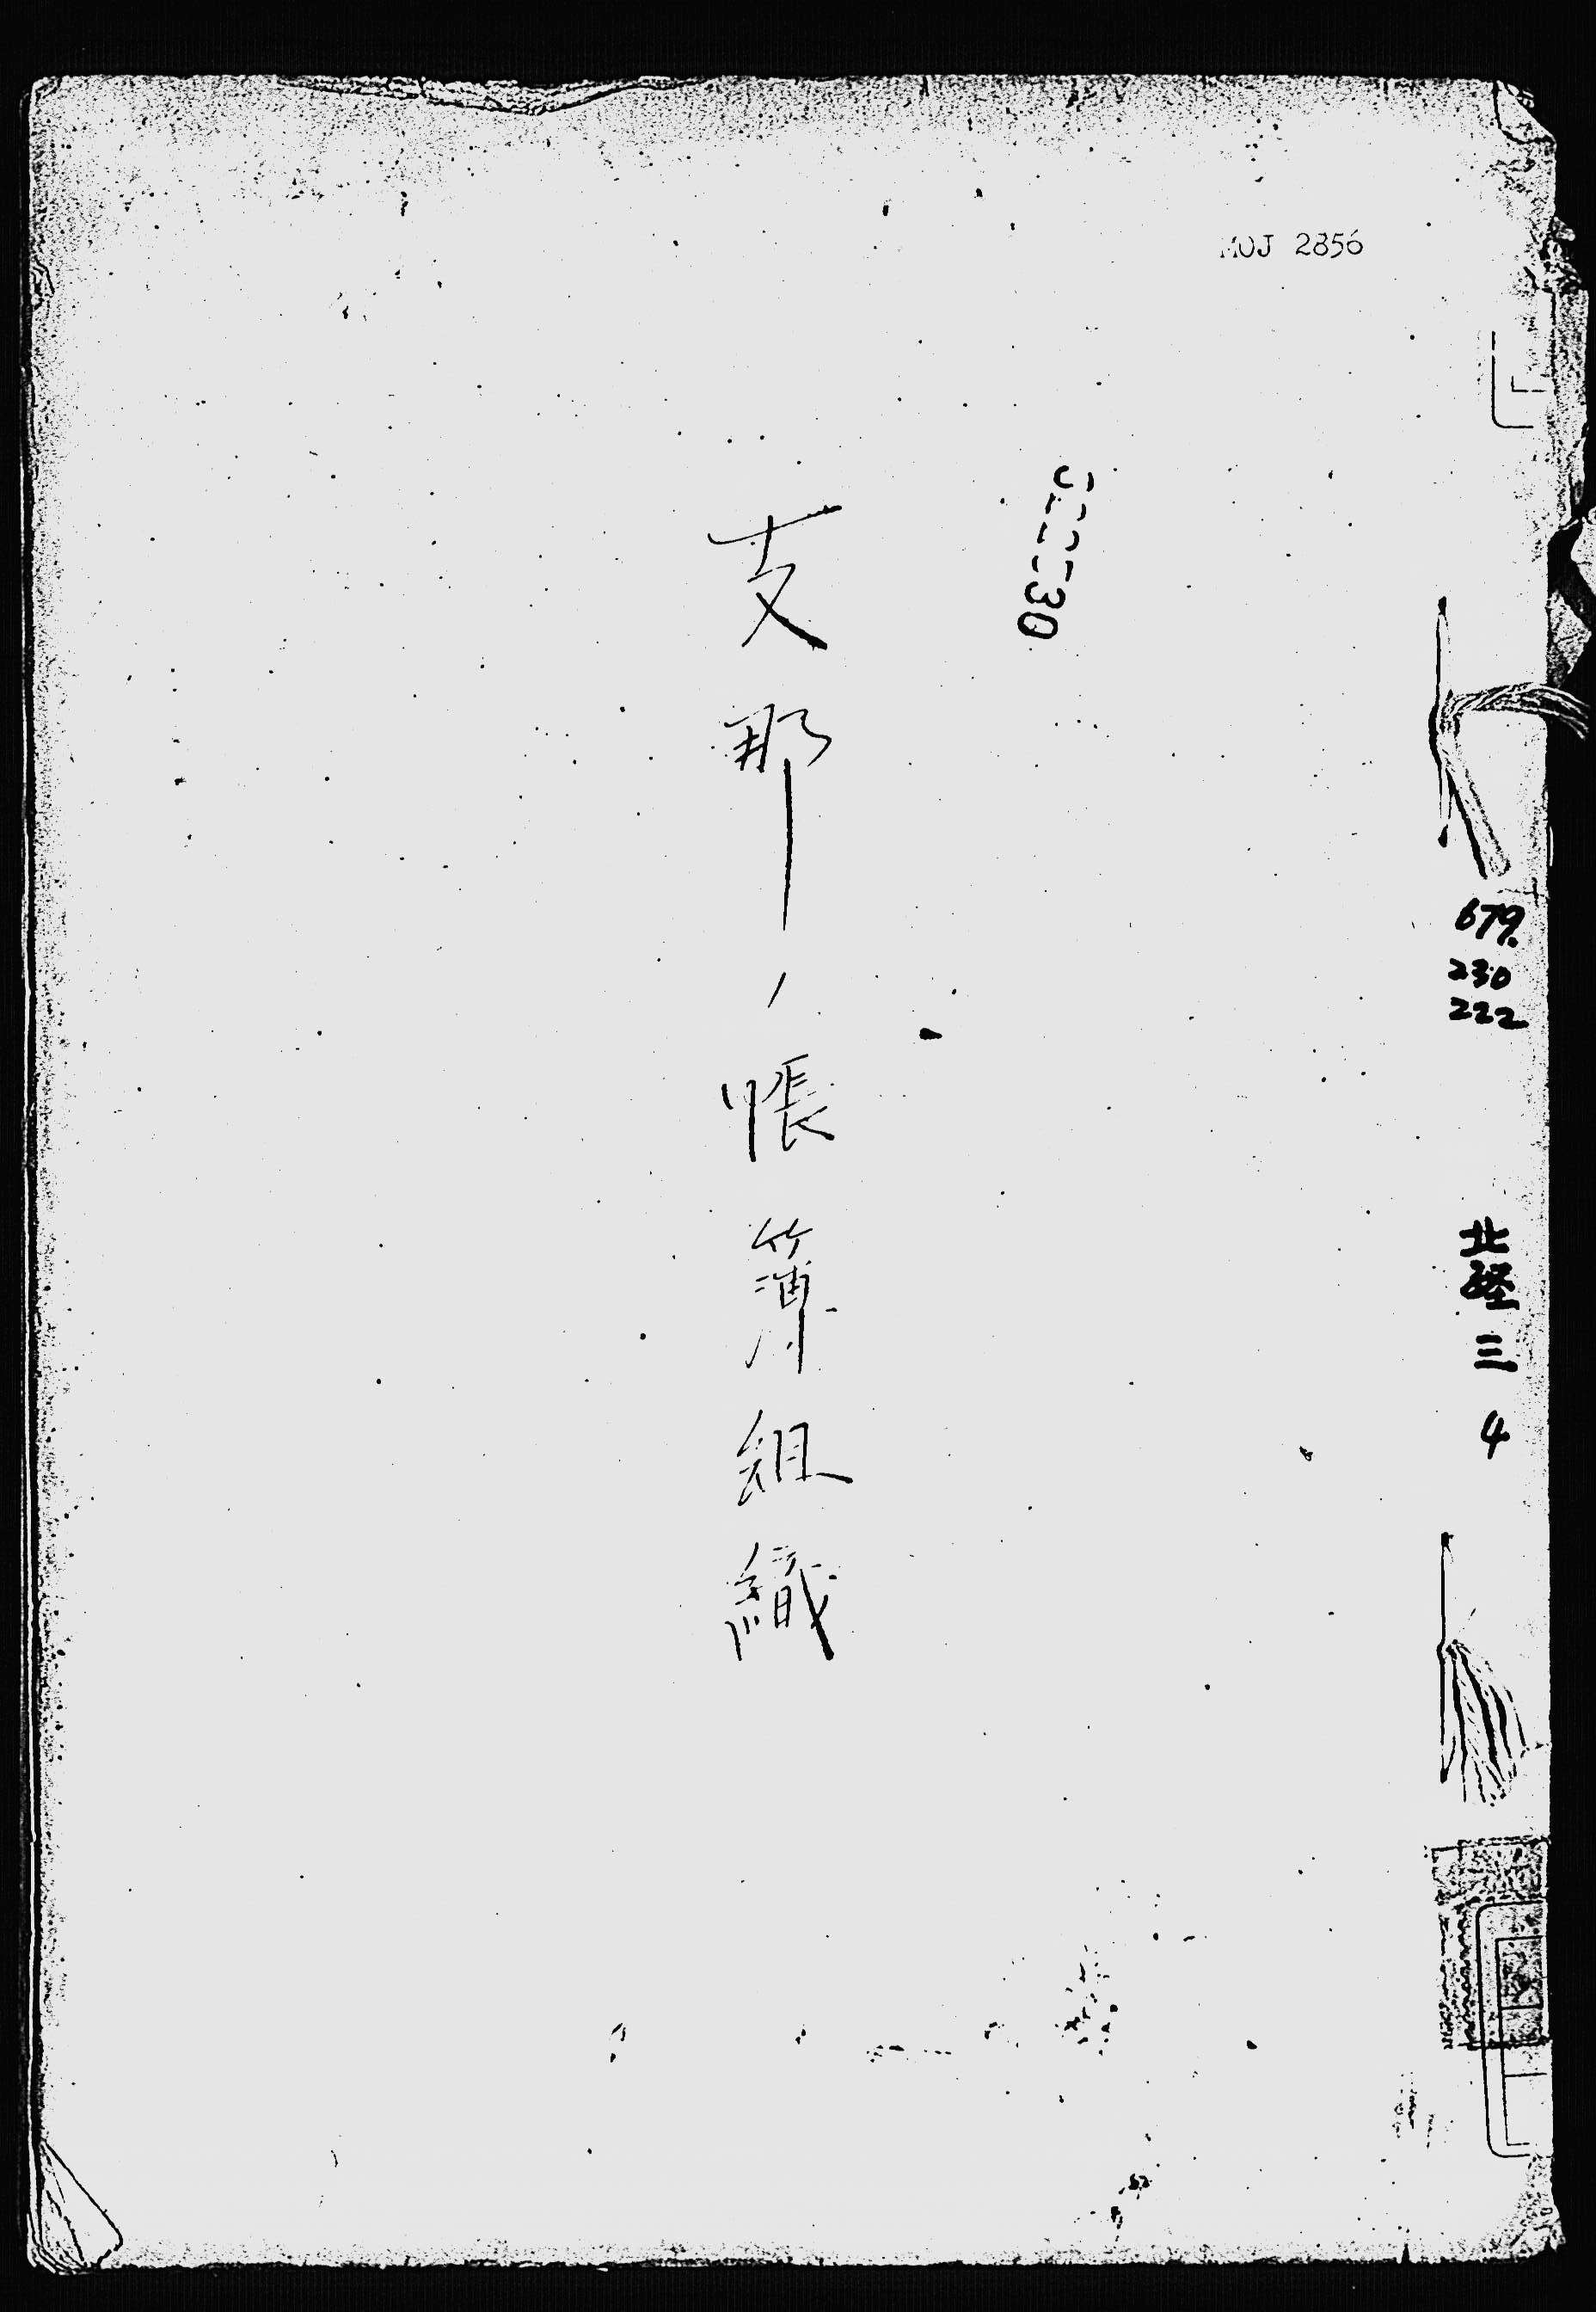 MOJ 2856
支那ノ帳簿組織
679.
230
222
北経三 4